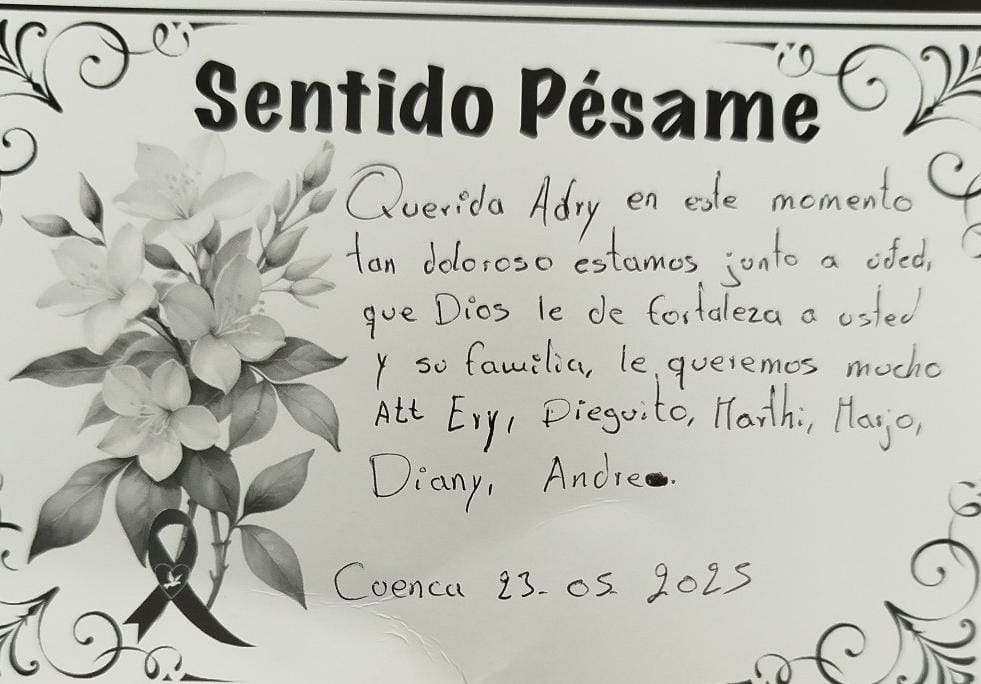 Sentido Pésame
Querida Adry en este momento
tan doloroso estamos junto a usted,
que Dios le de fortaleza a usted
y su familia, le queremos mucho
Att Ery, Dieguito, Marthi, Marjo,
Diany, Andrea.
Cuenca 23-05-2025